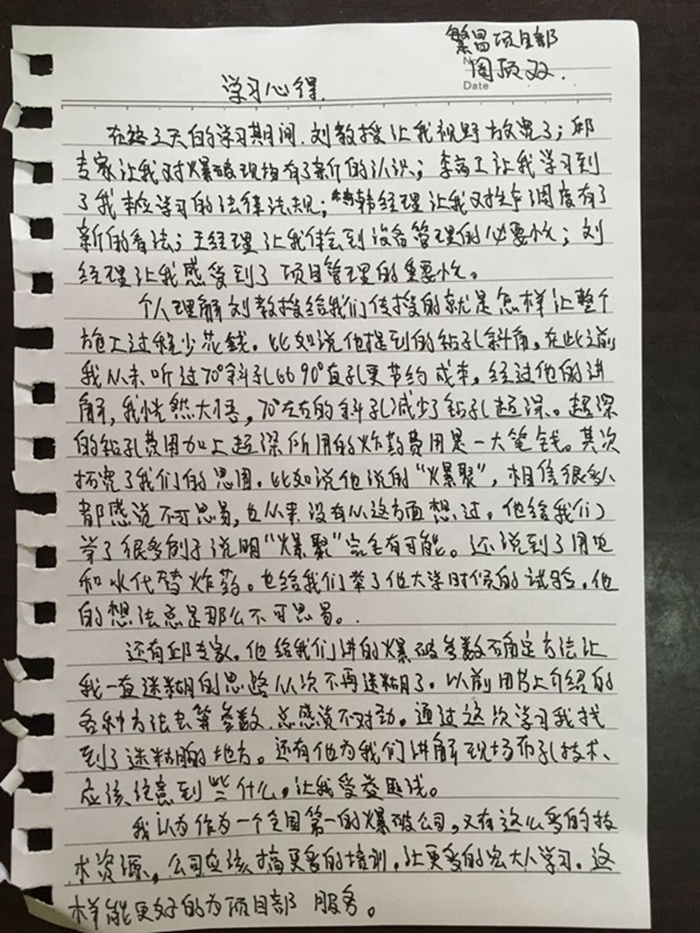 繁昌项目部
No
周顶双.
Date
学习心得.
在这3天的学习期间.刘教授让我视野放宽了;邱
专家让我对爆破现场有了新的认识;李高工让我学习到
了我本应学习的法律法规;韩经理让我对生产调度有了
新的看法;王经理让我体会到设备管理的必要性;刘
经理让我感受到了项目管理的重要性。
个人理解刘教授给我们传授的就是怎样让整个
施工过程少花钱.比如说他提到的钻孔斜角,在此之前
我从未听过70°斜孔比90°直孔更节约成本,经过他的讲
解,我恍然大悟,70°左右的斜孔减少了钻孔超深。超深
的钻孔费用加上超深所用的炸药费用是一大笔钱。其次
拓宽了我们的思围.比如说他说的“爆聚”,相信很多人
都感觉不可思易,也从来没有从这方面想过.他给我们
举了很多例子说明“爆聚”完全有可能。还说到了用电
和水代替炸药。也给我们举了他大学时候的试验.他
的想法总是那么不可思易。
还有邱专家.他给我们讲的爆破参数确定方法让
我一直迷糊的思路从次不再迷糊了.以前用书上介绍的
各种方法去算参数.总感觉不对劲。通过这次学习我找
到了迷糊的地方。还有他为我们讲解现场布孔技术、
应该注意到些什么,让我受益匪浅。
我认为作为一个全国第一的爆破公司,又有这么多的技
术资源,公司应该搞更多的培训,让更多的宏大人学习.这
样能更好的为项目部服务。